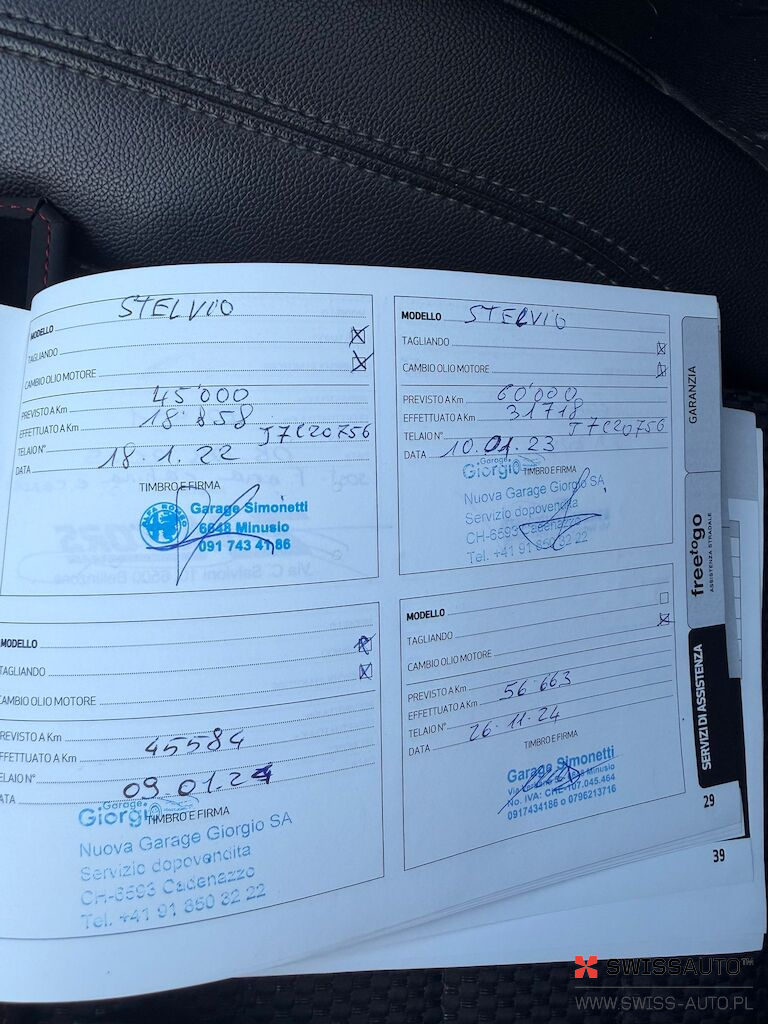 MODELLO STELVIO
TAGLIANDO
CAMBIO OLIO MOTORE
PREVISTO A Km 45'000
EFFETTUATO A Km 18'858
TELAIO N° J7C20756
DATA 18.1.22
TIMBRO E FIRMA
ALFA ROMEO
Garage Simonetti
6648 Minusio
091 743 41 86
MODELLO STELVIO
TAGLIANDO
CAMBIO OLIO MOTORE
PREVISTO A Km 60'000
EFFETTUATO A Km 31718
TELAIO N° J7C20756
DATA 10.01.23
TIMBRO E FIRMA
Garage
Giorgio
Nuova Garage Giorgio SA
Servizio dopovendita
CH-6593 Cadenazzo
Tel. +41 91 850 32 22
MODELLO
TAGLIANDO
CAMBIO OLIO MOTORE
PREVISTO A Km
EFFETTUATO A Km 45584
TELAIO N°
DATA 09.01.24
TIMBRO E FIRMA
Garage
Giorgio
Nuova Garage Giorgio SA
Servizio dopovendita
CH-6593 Cadenazzo
Tel. +41 91 850 32 22
MODELLO
TAGLIANDO
CAMBIO OLIO MOTORE
PREVISTO A Km
EFFETTUATO A Km 56'663
TELAIO N°
DATA 26.11.24
TIMBRO E FIRMA
Garage Simonetti
6648 Minusio
No. IVA: CHE-107.045.464
0917434186 o 0796213716
GARANZIA
freetogo
ASSISTENZA STRADALE
SERVIZI DI ASSISTENZA
29
39
SWISSAUTO™
WWW.SWISS-AUTO.PL